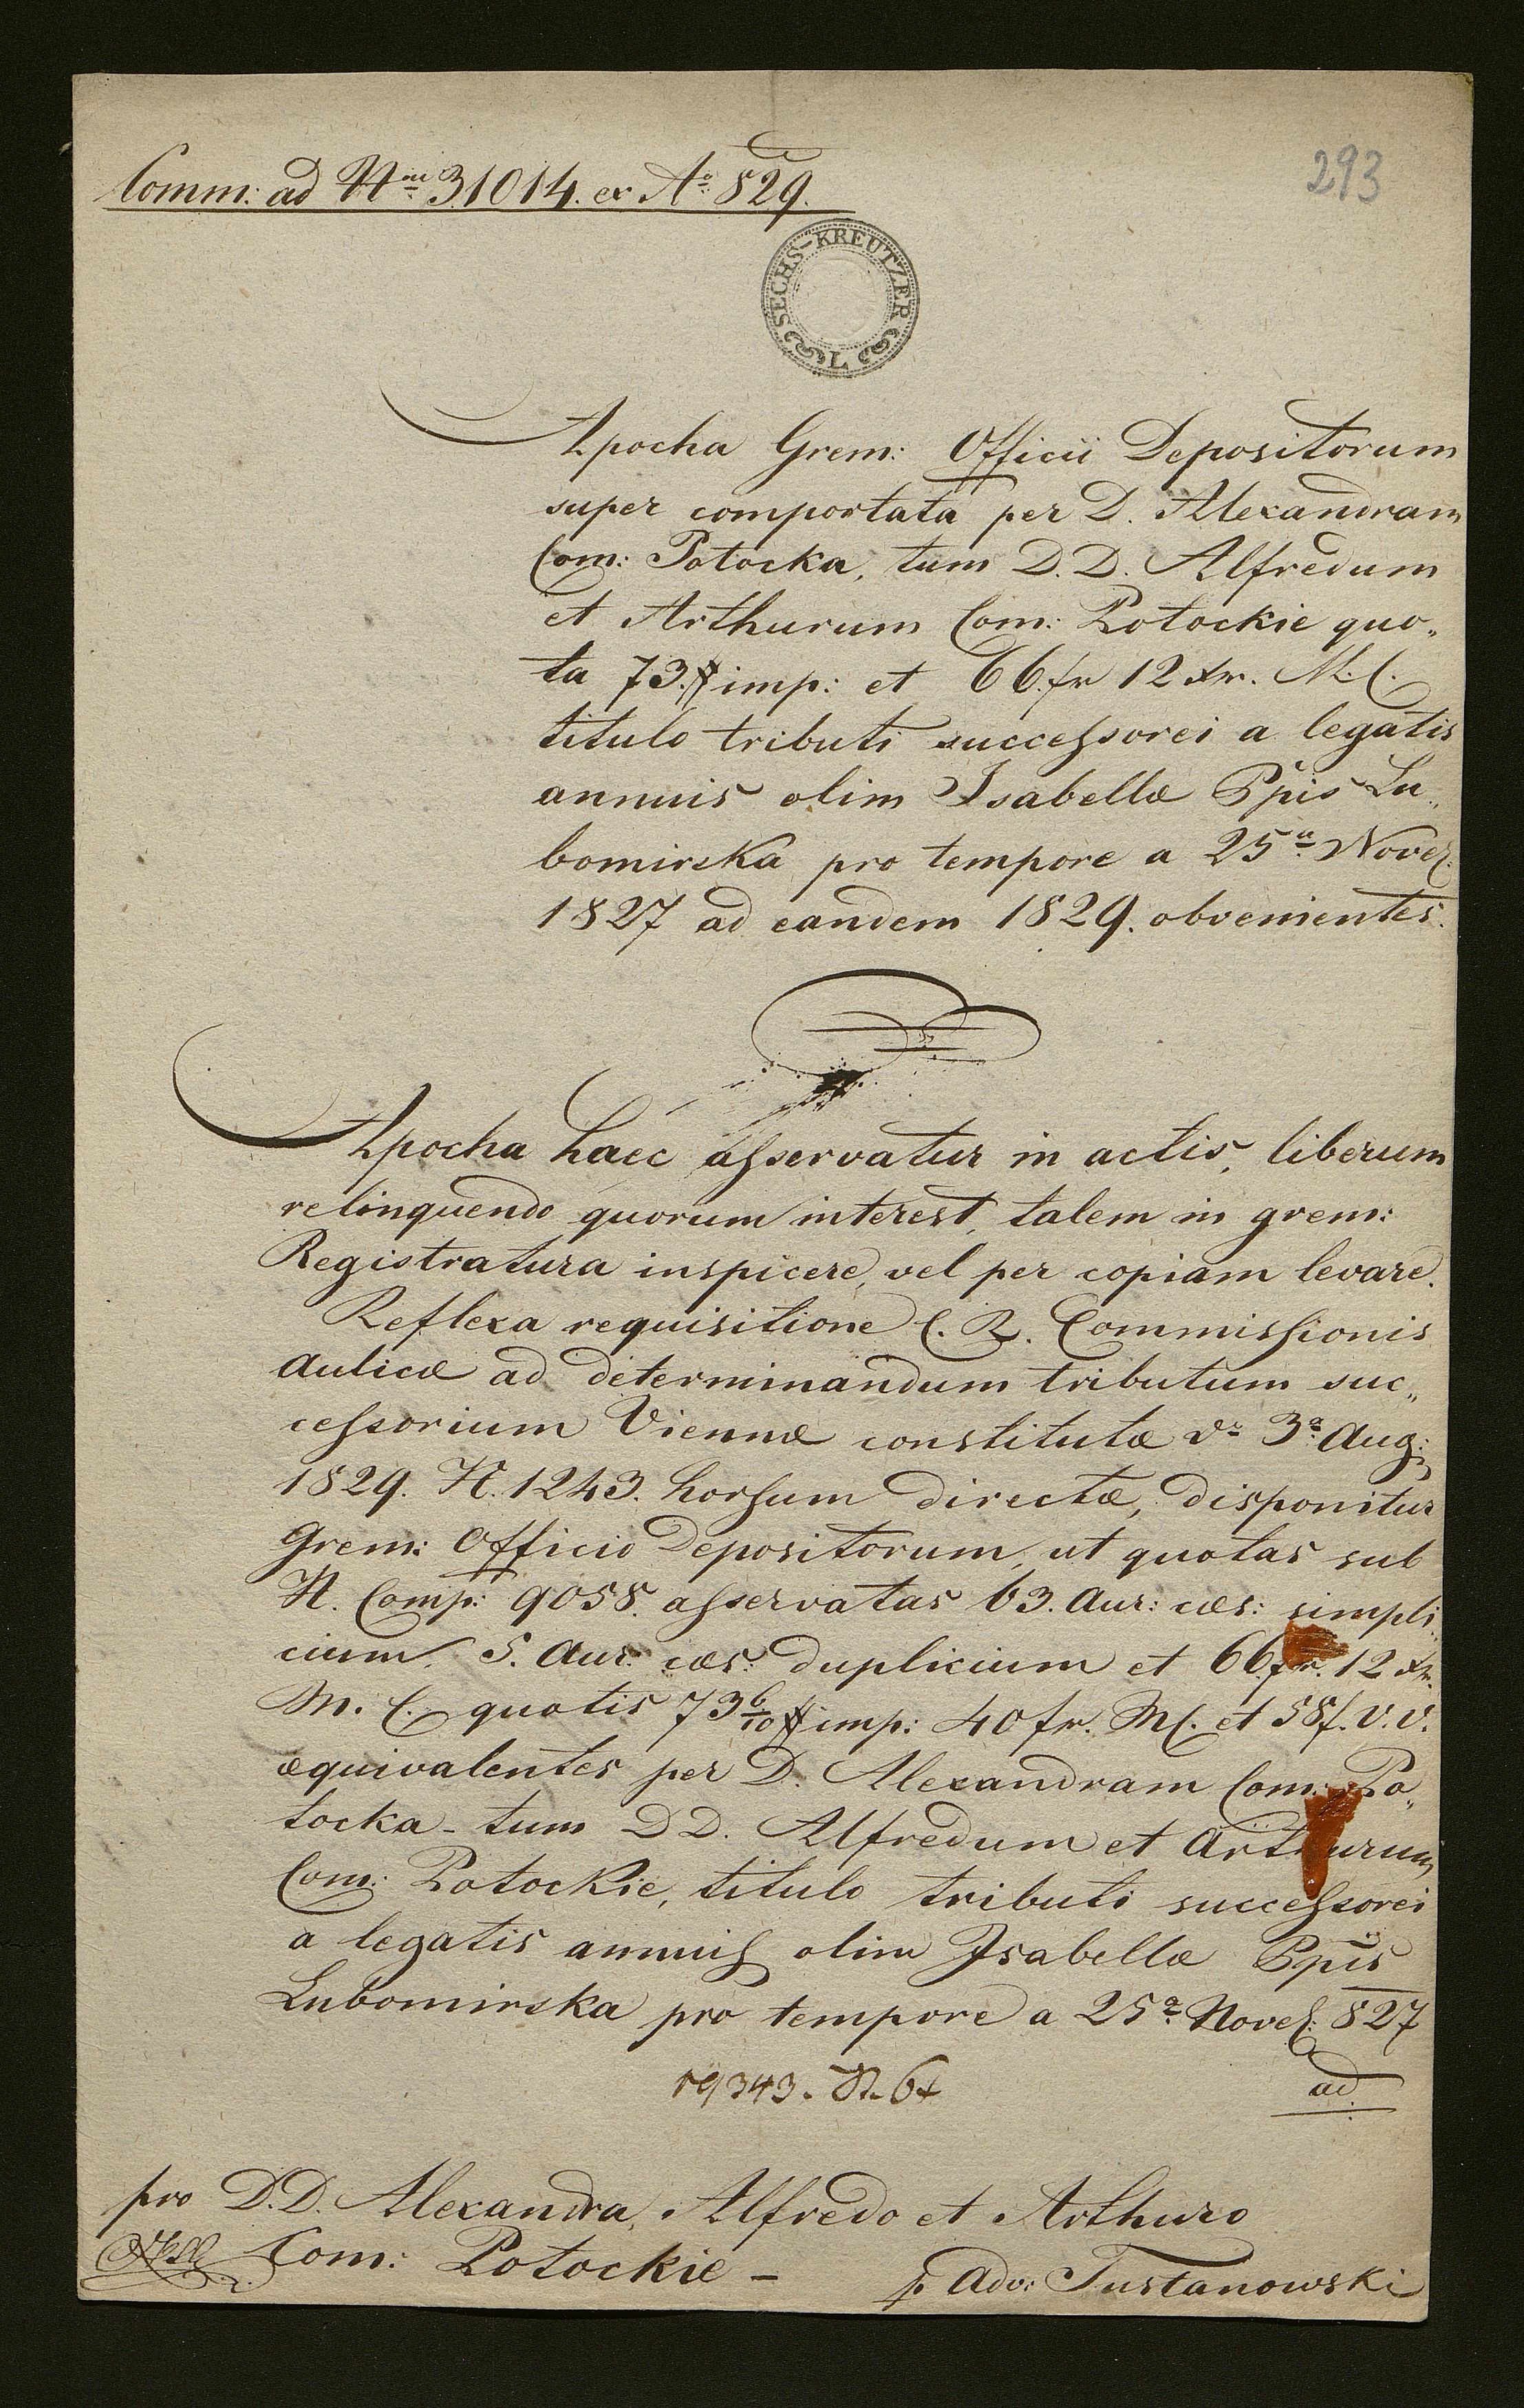 Comm: ad Nm 31014. ex Ao 829.
293
SECHS-KREUTZER
L
Apocha Grem: Officii Depositorum
super comportata per D. Alexandram
Com: Potocka, tum D.D. Alfredum
et Arthurum Com: Potockie quo„
ta 73.# imp: et 66.fr 12 xr. M.C.
titulo tributi successorei a legatis
annuis olim Isabellæ Ppis Lu„
bomirska pro tempore a 25a Noveb:
1827 ad eandem 1829. obvenientes.
Apocha haec asservatur in actis, liberum
relinquendo quorum interest, talem in grem:
Registratura inspicere, vel per copiam levare.
Reflexa requisitione C. R. Commissionis
Aulicæ ad determinandum tributum suc„
cessorium Viennæ constitutæ do 3a Aug:
1829. N. 1243. horsum directæ, disponitur
Grem: Officio Depositorum, ut quotas sub
N. Comp: 9058. asservatas 63. Aur: cæs: simpli„
cium, 5. Aur: cæs: duplicium et 66 fr. 12 xr.
M. C. quotis 73 6/10 # imp: 40 fr. MC. et 58 f. V.V.
æquivalentes per D. Alexandram Com: Po„
tocka - tum DD. Alfredum et Arthurum
Com: Potockie, titulo tributi successorei
a legatis annuis olim Isabellæ Ppis
Lubomirska pro tempore a 25a Noveb: 827
ad
19343. N. 6x
pro D.D. Alexandra, Alfredo et Arthuro
Com: Potockie -
p. Adv: Tustanowski